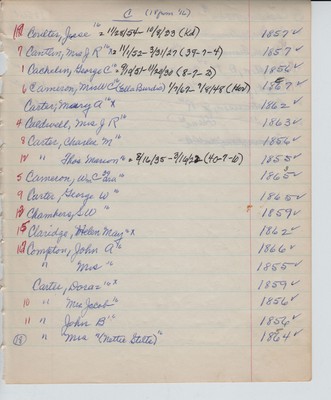 C (18 from '16)
19 Coulter, Jesse 16 = 11/28/54 - 10/8/33 (Kd) 1857 ✓
7 Cantlin, Mrs J. R 16 = 11/52 - 3/31/27 (39-7-4) 1857 ✓
1 Cachelin, George C 16 = 9/19/51 - 11/29/30 (8-7-2) 1856 ✓
6 Cameron, 16 (Ella Burdis) 1/7/67 3/8/48 (Hed) 1867 ✓
Carter, Mary A 16 x 1862 ✓
4 Caldwell, Mrs J R 16 1863 ✓
8 Carter, Charles M 16 1856 ✓
12 " Thos Marion 16 = 8/16/35 - 3/16/22 (40-7-10) 1855 ✓
5 Cameron, Wm C 1865 ✓
9 Carter, George W 16 1865 ✓
13 Chambers, S W 16 1859 ✓
15 Claridge, Helen May 16 x 1862 ✓
18 Compton, John A 16 1866 ✓
" Mrs 16 1855 ✓
Carter, Doras 16 x 1859 ✓
10 " Mrs Jacob 16 1856 ✓
11 " John B 16 1856 ✓
(18) " Mrs (Nettie Stilts) 16 1864 ✓